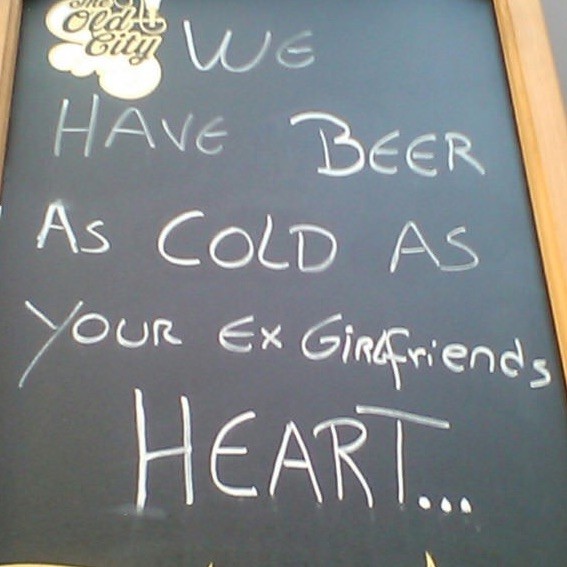 The
Old
City
WE
HAVE BEER
AS COLD AS
YOUR EX GIRLfriends
HEART...